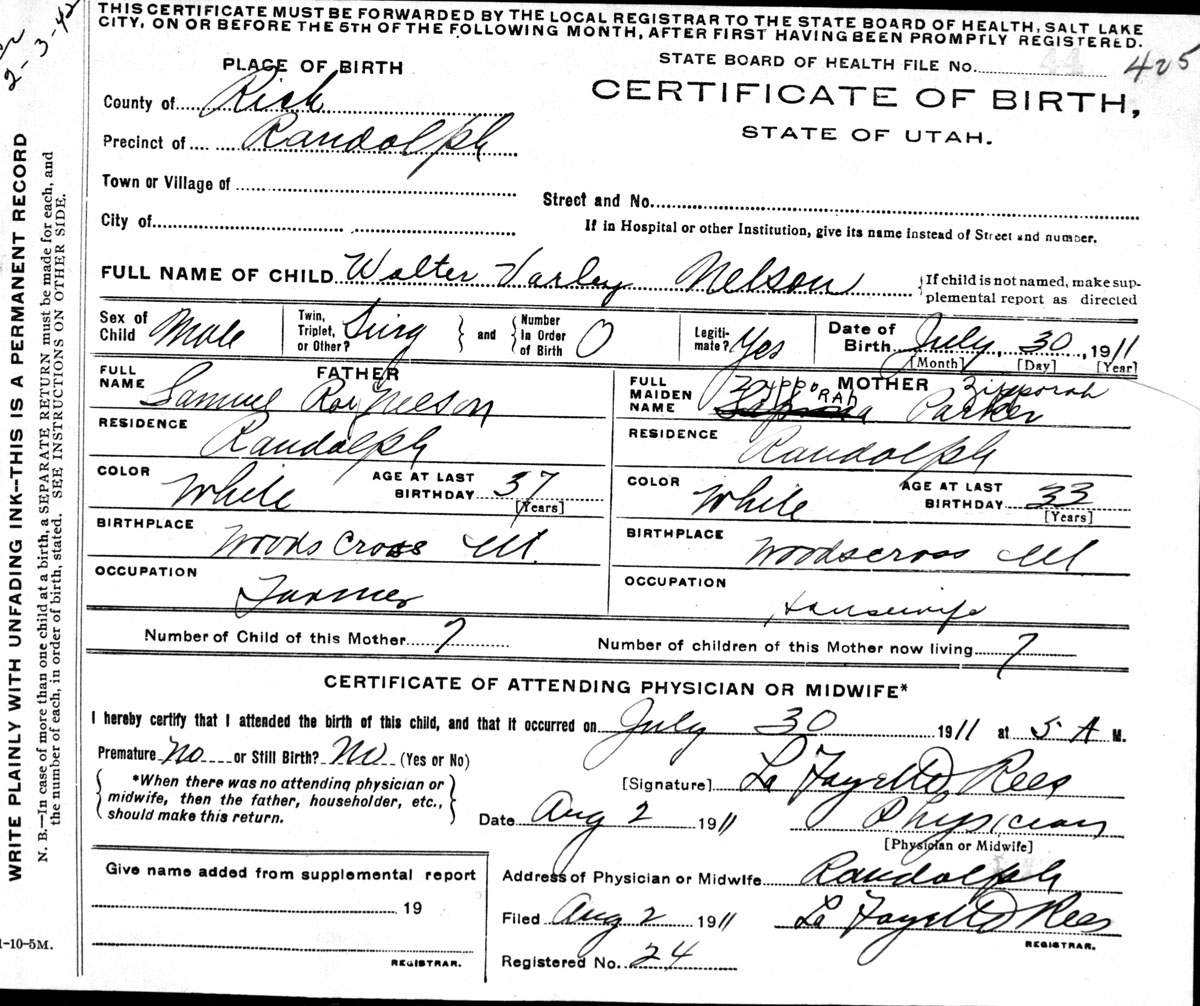 THIS CERTIFICATE MUST BE FORWARDED BY THE LOCAL REGISTRAR TO THE STATE BOARD OF HEALTH, SALT LAKE
CITY, ON OR BEFORE THE 5TH OF THE FOLLOWING MONTH, AFTER FIRST HAVING BEEN PROMPTLY REGISTERED.
2-3-42
WRITE PLAINLY WITH UNFADING INK—THIS IS A PERMANENT RECORD
N. B.—In case of more than one child at a birth, a SEPARATE RETURN must be made for each, and
the number of each, in order of birth, stated. SEE INSTRUCTIONS ON OTHER SIDE.
STATE BOARD OF HEALTH FILE No. 44 425
PLACE OF BIRTH
CERTIFICATE OF BIRTH,
STATE OF UTAH.
County of Rich
Precinct of Randolph
Town or Village of
Street and No.
City of
If in Hospital or other Institution, give its name instead of Street and number.
FULL NAME OF CHILD Walter Varley Nelson {If child is not named, make sup-
plemental report as directed
Sex of Child Male Twin, Triplet, or Other? Sing } and { Number In Order of Birth 0 Legiti- mate? Yes Date of Birth July, 30, 1911
[Month] [Day] [Year]
FATHER
FULL NAME Samuel Roy Nelson
RESIDENCE Randolph
COLOR White AGE AT LAST BIRTHDAY 37
[Years]
BIRTHPLACE Woods Cross Ut.
OCCUPATION Farmer
MOTHER
FULL MAIDEN NAME Zipporah Parker
RESIDENCE Randolph
COLOR White AGE AT LAST BIRTHDAY 33
[Years]
BIRTHPLACE Woodscross Ut
OCCUPATION Housewife
Number of Child of this Mother 7 Number of children of this Mother now living 7
CERTIFICATE OF ATTENDING PHYSICIAN OR MIDWIFE*
I hereby certify that I attended the birth of this child, and that it occurred on July 30 1911 at 5 A M.
Premature No or Still Birth? No (Yes or No)
{ *When there was no attending physician or
midwife, then the father, householder, etc.,
should make this return. }
[Signature] La Fayette Rees
Date Aug 2 1911 Physician
[Physician or Midwife]
Give name added from supplemental report
19
REGISTRAR.
Address of Physician or Midwife Randolph
Filed Aug 2 1911 La Fayette Rees
REGISTRAR.
Registered No. 24
1-10-5M.